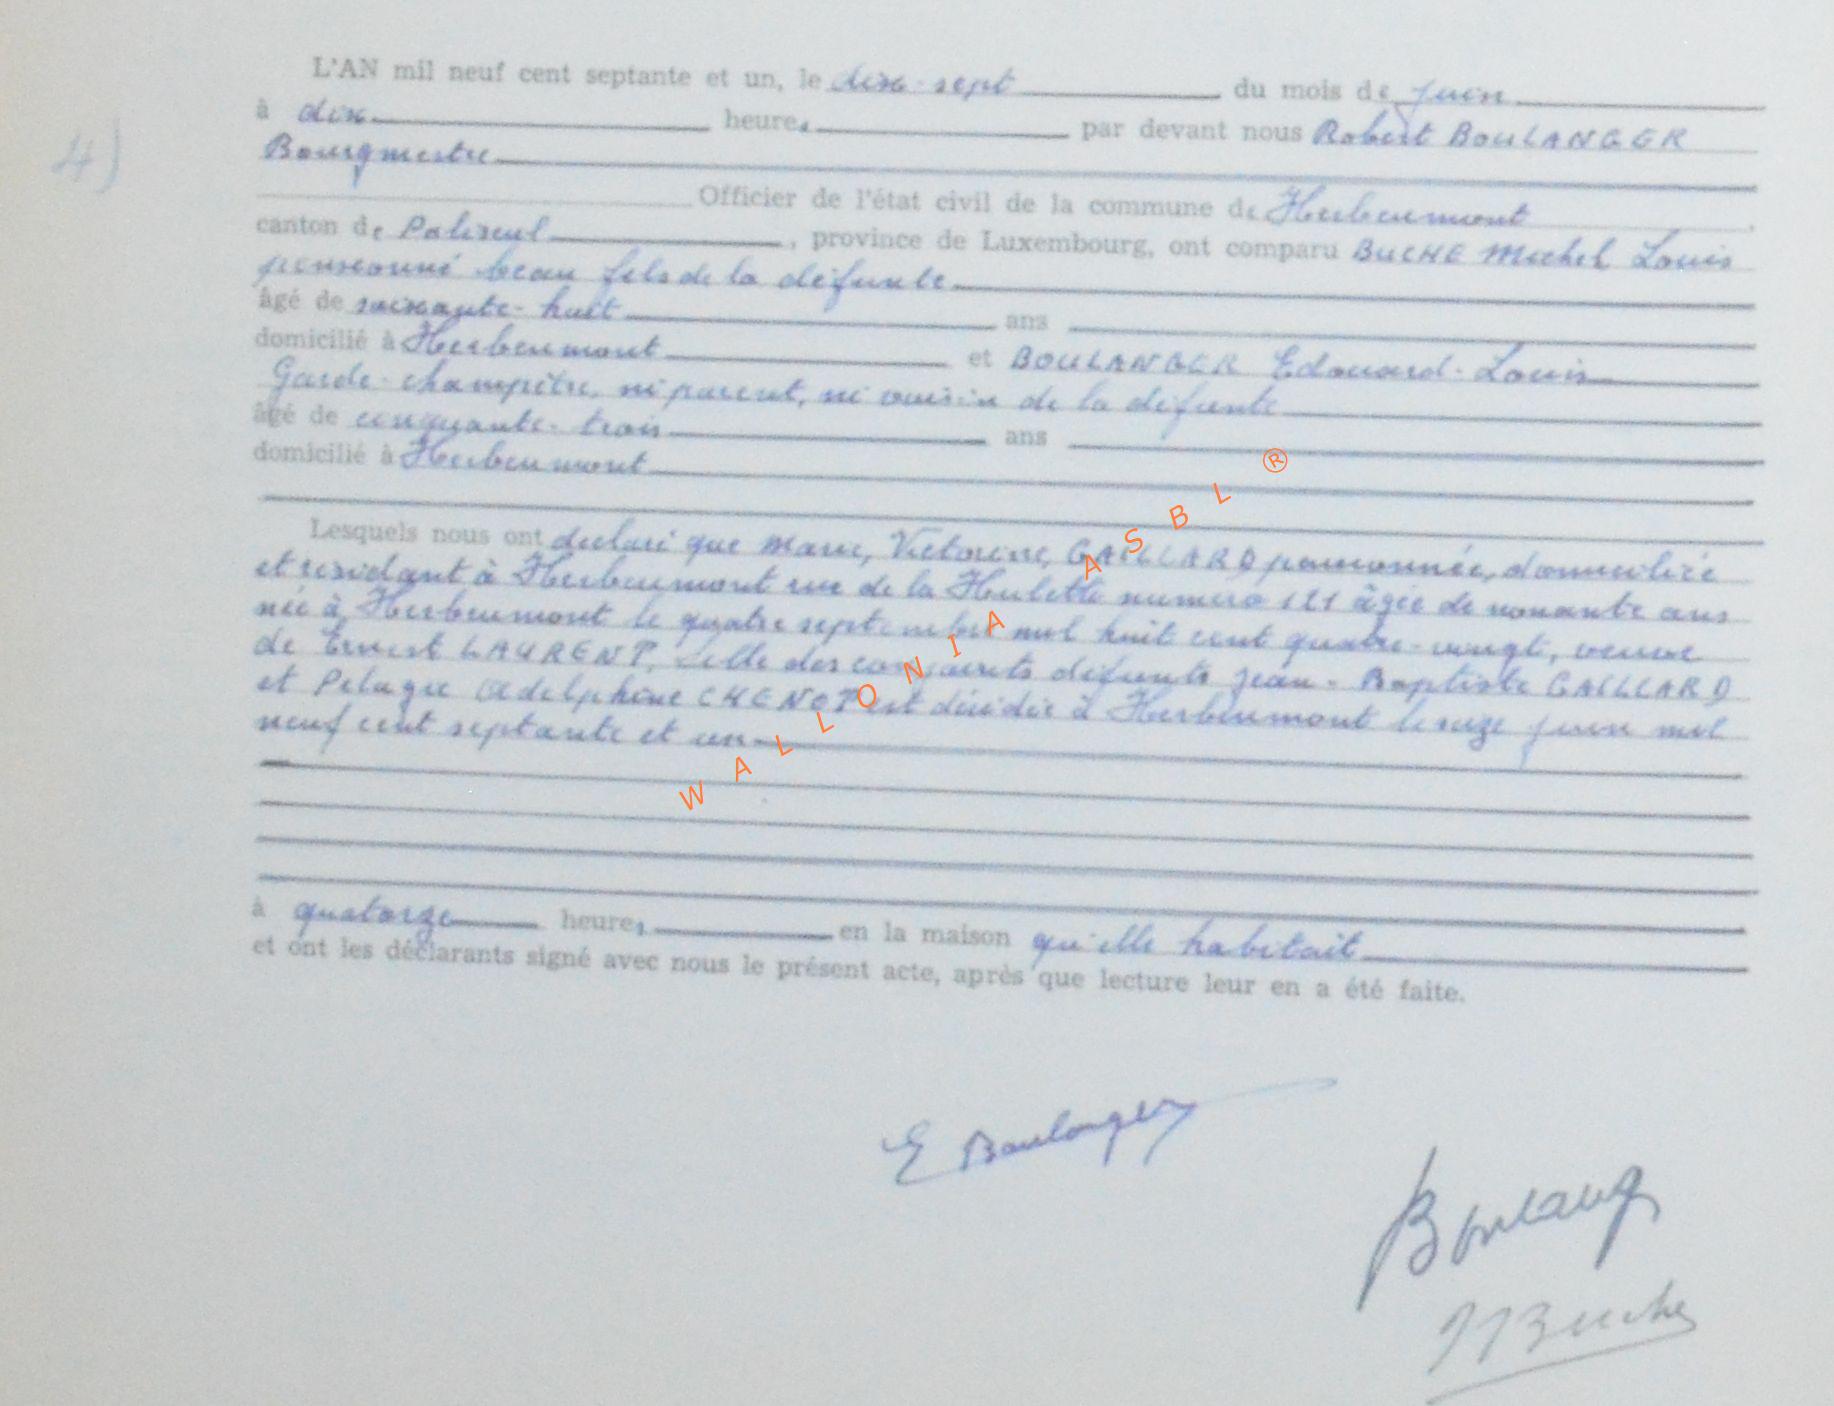 L'AN mil neuf cent septante et un, le dix-sept du mois de juin
à dix heures par devant nous Robert BOULANGER
4)
Bourgmestre
Officier de l'état civil de la commune de Herbeumont
canton de Paliseul, province de Luxembourg, ont comparu BUCHE Michel Louis
pensionné beau fils de la défunte
âgé de soixante-huit ans
domicilié à Herbeumont et BOULANGER Edouard-Louis
Garde-champêtre, ni parent, ni voisin de la défunte
âgé de cinquante-trois ans
domicilié à Herbeumont
Lesquels nous ont déclaré que Marie, Victorine, GAILLARD pensionnée, domiciliée
et résidant à Herbeumont rue de la Hulette numéro 121 âgée de nonante ans
née à Herbeumont le quatre septembre mil huit cent quatre-vingt, veuve
de Ernest LAURENT, fille des conjoints défunts Jean-Baptiste GAILLARD
et Pélagie Adelphine CHENOT est décédée à Herbeumont le seize juin mil
neuf cent septante et un
à quatorze heures en la maison qu'elle habitait
et ont les déclarants signé avec nous le présent acte, après que lecture leur en a été faite.
WALLONIA ASBL ®
E Boulanger
Boulang
M Buche